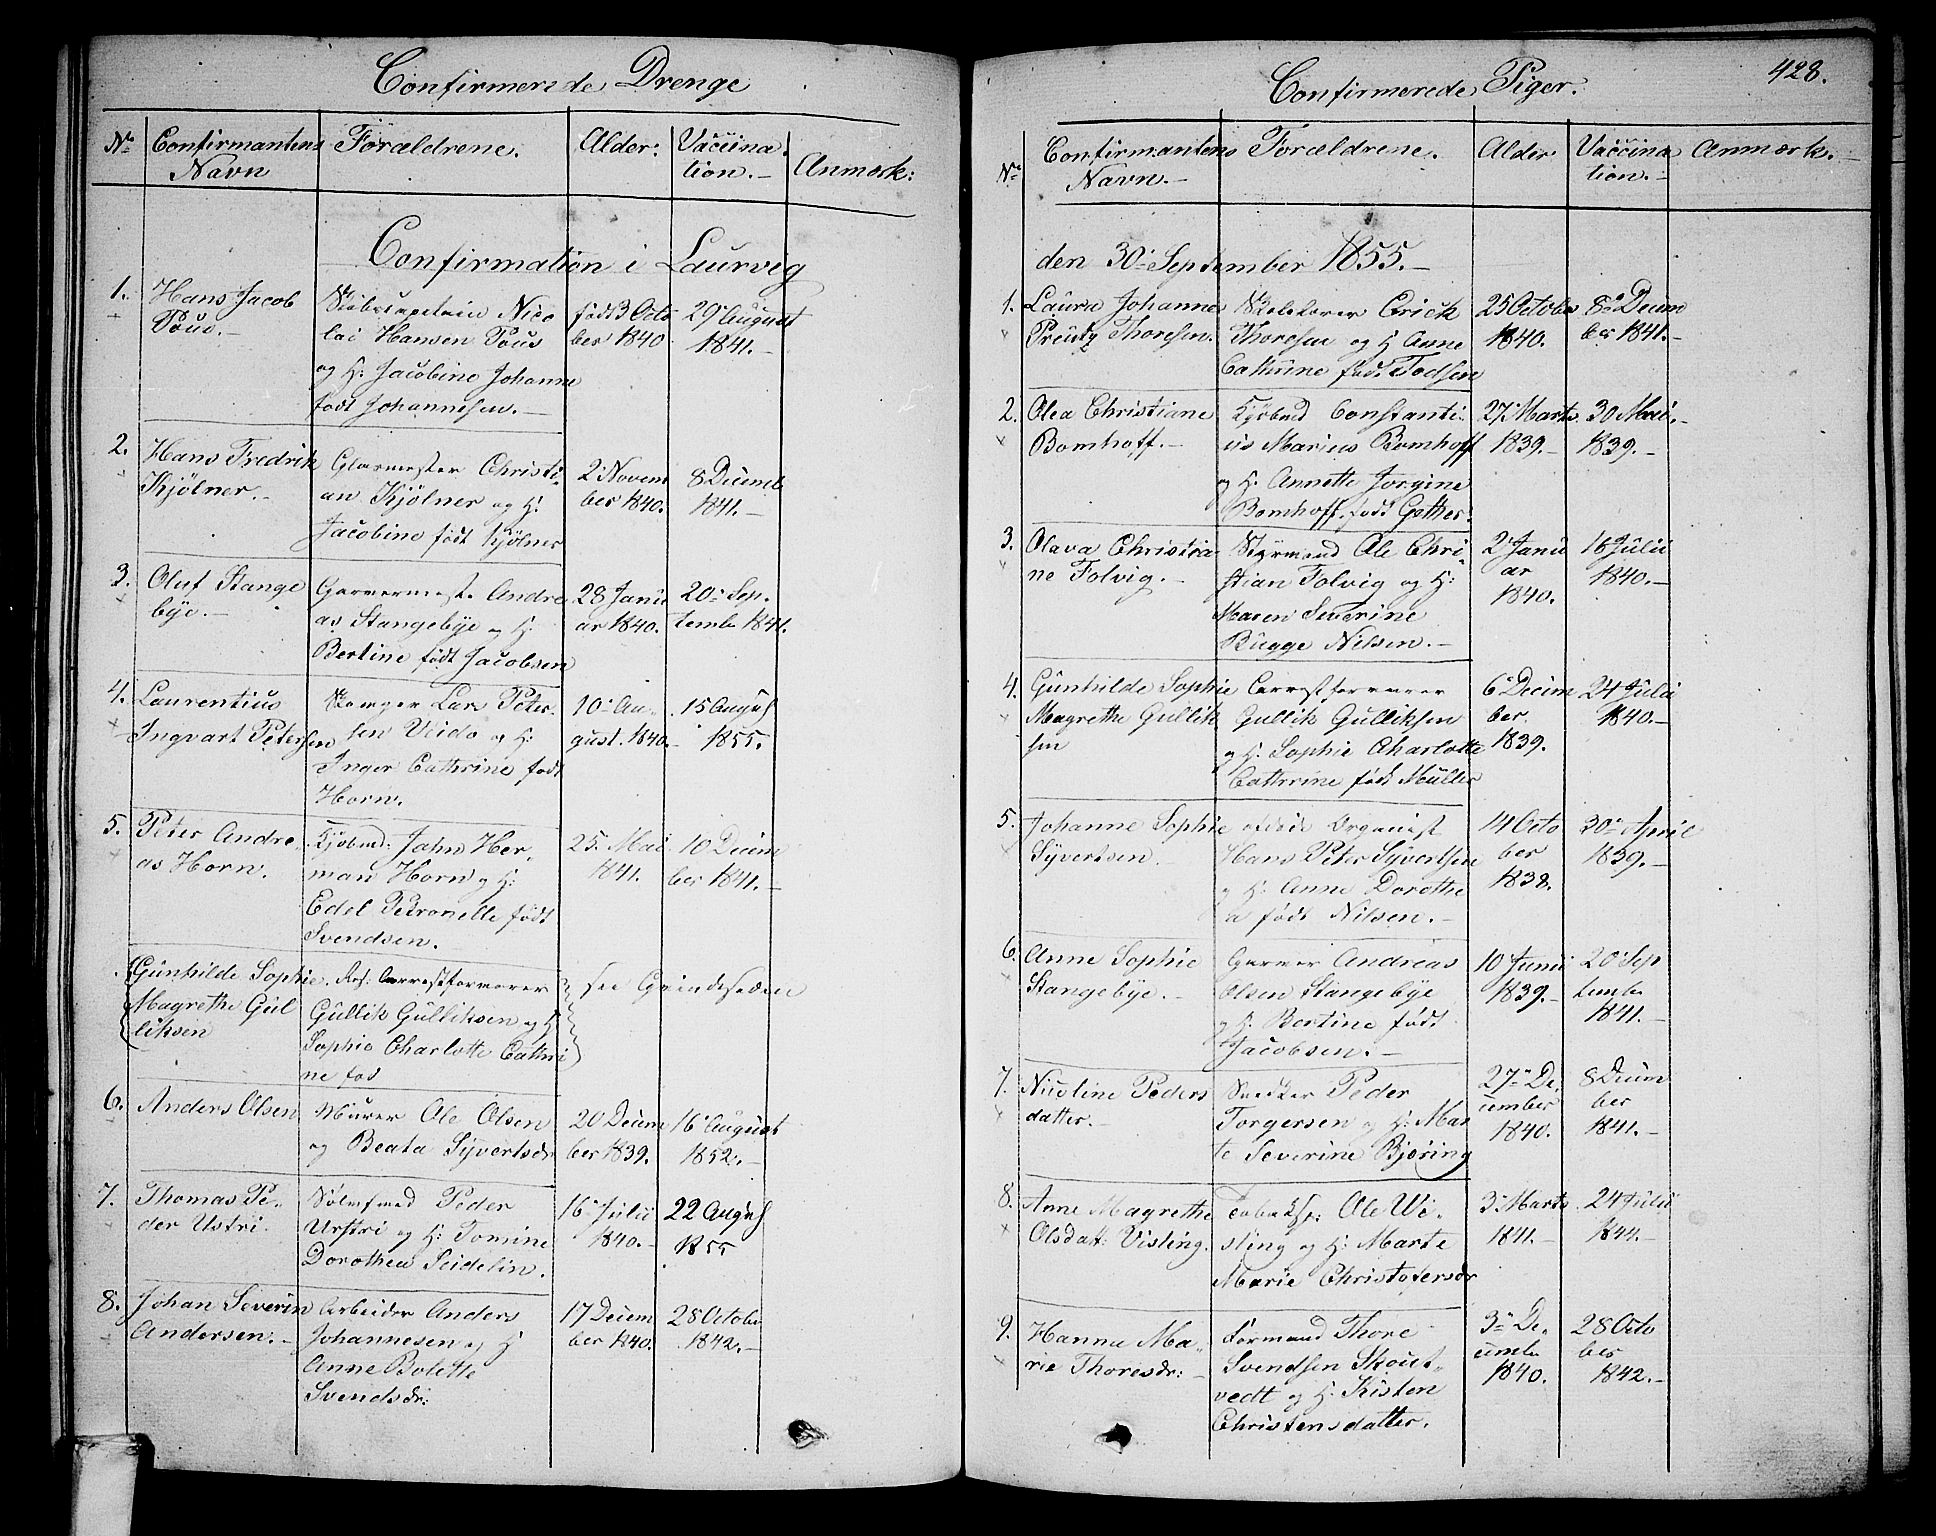 Confirmerede Drenge
No
Confirmantens
Navn
Forældrene.
Alder:
Vaccina
tion.-
Anmærk:
Confirmation i Laurvig
1.
Hans Jacob
Pous.-
Skibscaptein Nico
lai Hansen Pous
og H: Jacobine Johanne
født Johannesen.-
født 3 Octo
ber 1840
29 August
1841.-
2.
Hans Fredrik
Kjölner.-
Glarmester Christi
an Kjölner og H:
Jacobine født Kjölner
2 Novem
ber 1840.
8 Decemb
1841.-
3.
Oluf Stange
bye.-
Garvermest. Andre
as Stangebye og H:
Bertine født Jacobsen
28 Janu
ar 1840.
20 Sep.
temb 1841.
4.
Laurentius
Ingvart Petersen
Lars Peter
sen og H:
Inger Cathrine født
Horn.
10 Au
gust. 1840.-
15 August
1855.
5.
Peter Andre
as Horn.
Kjøbmd: John Her
man Horn og H:
Edel Petronelle født
Svendsen.
25. Mai
1841.
10 Decem
ber 1841.-
Gunhilde Sophie
Magrethe Gul
liksen
Res: Arrestforvarer
Gullik Gulliksen og H
Sophie Charlotte Cathri
ne fød
see Qvindesiden
6.
Anders Olsen
Murer Ole Olsen
og Beata Syvertsdr
20 Decem
ber 1839.
16 August
1852.-
7.
Thomas Pe
der Ustri.
Peder
Urstri og H: Tomine
Dorothea Seidelin.
16 Julii
1840.-
22 August
1855
8.
Johan Severin
Andersen.-
Arbeider Anders
Johannesen og H
Anne Bolette
Svendsdr:
17 Decem
ber 1840.
28 Octobr
1842.-
Confirmerede Piger.
428.
No
Confirmantens
Navn.-
Forældrene.
Alder
Vaccina
tion.-
Anmærk.
den 30 September 1855.-
1.
Laura Johanne
Preutz Thoresen.
Skolelærer Erick
Thoresen og H Anne
Cathrine født Todsen
25 October
1840.
8 Decem
ber 1841.-
2.
Olea Christiane
Bomhoff.-
Kjøbmd Constanti
us Marius Bomhoff
og H. Annette Jorgine
Bomhoff, født Gother:
27 Marts
1839.-
30 Mai.-
1839.-
3.
Olava Christia-
ne Folvig.-
Styrmand Ole Chri
stian Folvig og H:
Maren Severine
Bugge Nilsen.-
2 Janu
ar
1840.
16 Julii
1840.-
4.
Gunhilde Sophie
Magrethe Gullik
sen
Arrestforvarer
Gullik Gulliksen
og H. Sophie Charlotte
Cathrine født Müller
6 Decem
ber
1839.
24 Julii
1840.-
5.
Johanne Sophie
Syvertsen
afdøde Organist
Hans Peter Syvertsen
og H: Anne Dorothe
a født Nilsen.-
14 Octo
ber
1838.
30 April
1839.-
6.
Anne Sophie
Stangebye.-
Garver Andreas
Olsen Stangebye
og H. Bertine født
Jacobsen.-
10 Junii
1839.-
20 Sep
tembr
1841.-
7.
Nicoline Peders
datter.-
Snedker Peder
Torgersen og H. Mar
te Severine Bjøring
27 De
cember
1840.
8 Decem
ber
1841.-
8.
Anne Magrethe
Olsdatt: Visling.
Ole Wi-
sling og H: Marte
Marie Christofersdr
3 Marts
1841.-
24 Julii
1844.-
9.
Hanna Ma-
rie Thoresdr:-
Formand Thore
Svendsen Skout-
vedt og H. Kisten
Christensdatter.
3 De-
cembr
1840.
28 Octo
ber
1842.-